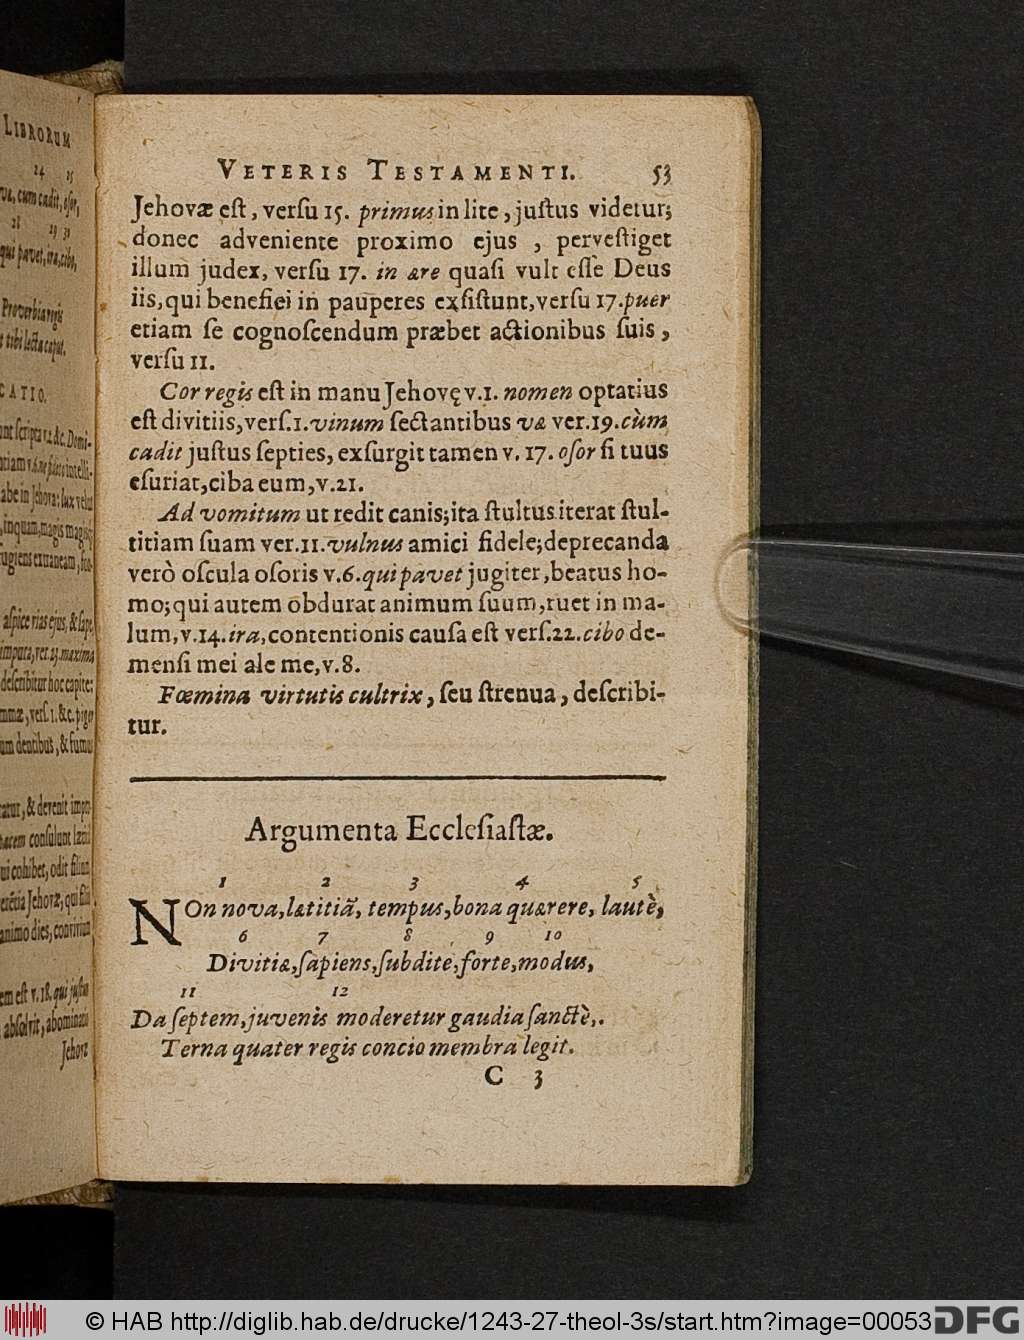 LIBRORUM
24 25
va, cum cadit, osor,
28 29 31
qui pavet, ira, cibo,
Proverbia regis
tibi lecta caput.
CATIO.
VETERIS TESTAMENTI. 53
Jehovæ eſt, verſu 15. primus in lite, juſtus videtur;
donec adveniente proximo ejus, perveſtiget
illum judex, verſu 17. in ære quaſi vult eſſe Deus
iis, qui benefici in pauperes exſiſtunt, verſu 17. puer
etiam ſe cognoſcendum præbet actionibus ſuis,
verſu 11.
Cor regis eſt in manu Jehovę v. 1. nomen optatius
eſt divitiis, verſ. 1. vinum ſectantibus væ ver. 19. cùm
cadit juſtus ſepties, exſurgit tamen v. 17. oſor ſi tuus
eſuriat, ciba eum, v. 21.
Ad vomitum ut redit canis; ita ſtultus iterat ſtul-
titiam ſuam ver. 11. vulnus amici fidele; deprecanda
verò oſcula oſoris v. 6. qui pavet jugiter, beatus ho-
mo; qui autem obdurat animum ſuum, ruet in ma-
lum, v. 14. ira, contentionis cauſa eſt verſ. 22. cibo de-
menſi mei ale me, v. 8.
Fœmina virtutis cultrix, ſeu ſtrenua, deſcribi-
tur.
Argumenta Eccleſiaſtæ.
1 2 3 4 5
NOn nova, lætitiã, tempus, bona quærere, lautè,
6 7 8 9 10
Divitiæ, ſapiens, ſubdite, forte, modus,
11 12
Da ſeptem, juvenis moderetur gaudia ſanctè,.
Terna quater regis concio membra legit.
C 3
© HAB http://diglib.hab.de/drucke/1243-27-theol-3s/start.htm?image=00053
DFG